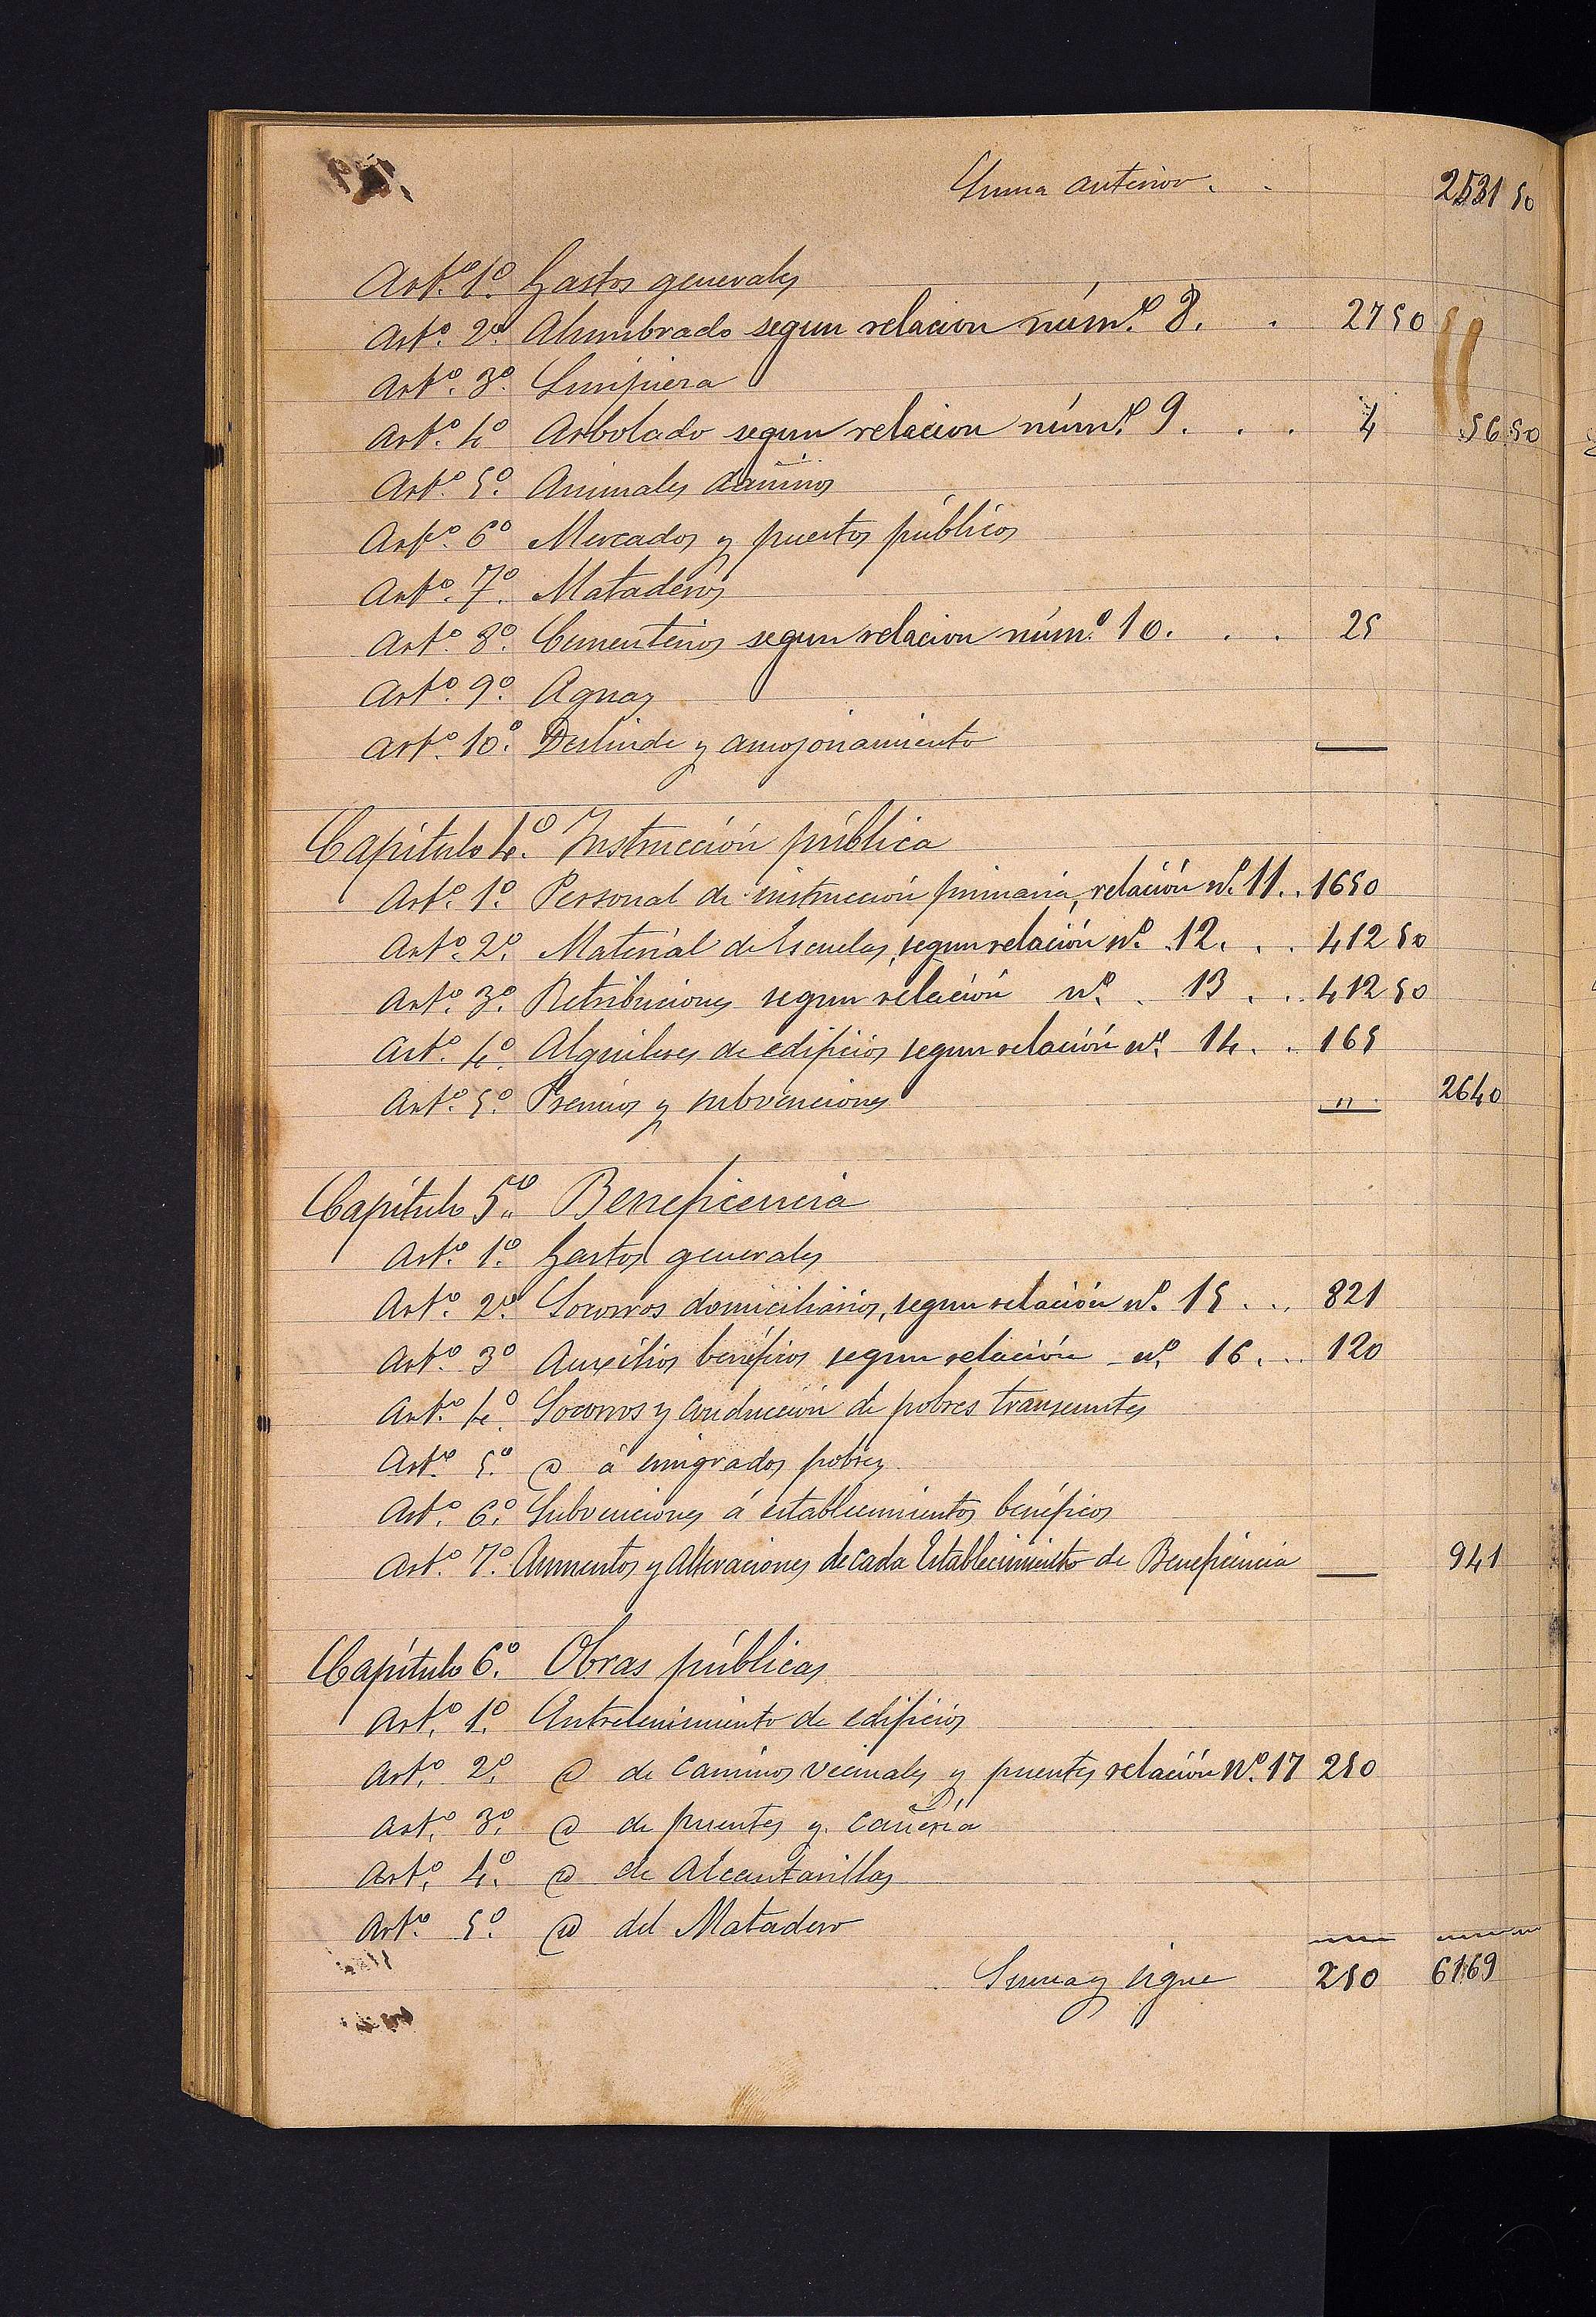 Suma anterior. . 2531 50
Artº. 1º. Gastos generales
Artº. 2º. Alumbrado segun relacion núm.º 8. . 27 50
Artº. 3º. Limpieza
Artº. 4º Arbolado segun relacion núm.º 9. . . 4 56 50
Artº. 5º. Animales dañinos
Artº. 6º Mercados y puestos públicos
Artº. 7º. Mataderos
Artº. 8º. Cementerios segun relacion núm.º 10. . . 25
Artº. 9º. Aguas
Artº. 10º. Deslinde y amojonamiento
Capítulo 4º. Instrucción pública
Artº. 1º. Personal de instruccion primaria, relación nº. 11. . 1650
Artº. 2º. Material de Escuelas, segun relación nº. 12. . . 412 50
Artº. 3º. Retribuciones segun relación nº. 13 . . 412 50
Artº. 4º. Alquileres de edificios segun relación nº. 14. . 165
Artº. 5º. Premios y subvenciones " 2640
Capítulo 5º. Beneficencia
Artº. 1º. Gastos generales
Artº. 2º. Socorros domiciliarios, segun relación nº. 15 . . . 821
Artº. 3º Auxilios benéficos segun relación nº. 16. . . 120
Artº. 4º. Socorros y conduccion de pobres transeuntes
Artº. 5º. @ á emigrados pobres
Artº. 6º. Subvenciones á establecimientos benéficos
Artº. 7º. Aumentos y Alteraciones de cada Establecimiento de Beneficencia 941
Capítulo 6º. Obras públicas
Artº. 1º. Entretenimiento de edificios
Artº. 2º. @ de Caminos vecinales y puentes relación Nº. 17 250
Artº. 3º. @ de fuentes y cañería
Artº. 4º. @ de Alcantarillas
Artº. 5º. @ del Matadero
Suma y sigue 250 6169